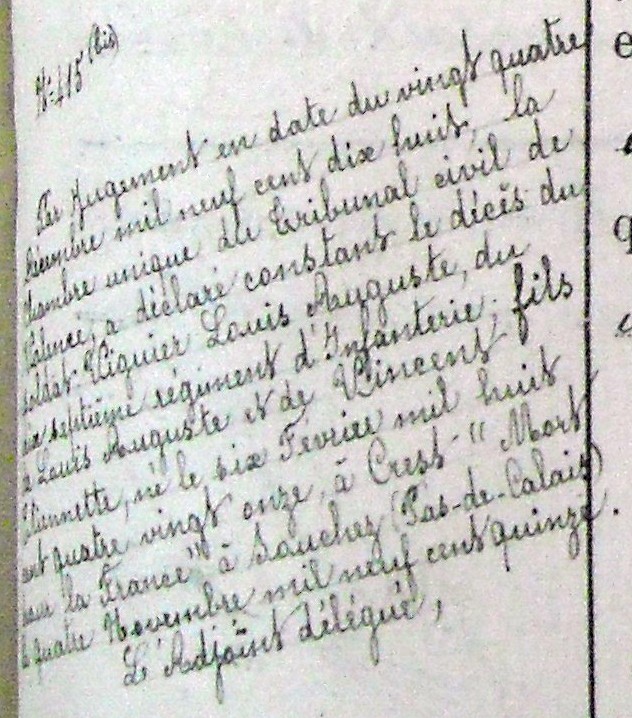 N° 415 (bis)
Par Jugement en date du vingt quatre
décembre mil neuf cent dix huit, la
chambre unique du Tribunal civil de
Valence, a déclaré constant le décès du
soldat Viguier Louis Auguste, du
dix septième régiment d'Infanterie, fils
de Louis Auguste et de Vincent
Etiennette, né le six Février mil huit
cent quatre vingt onze, à Crest "Mort
pour la France" à Souchez (Pas-de-Calais)
le quatre Novembre mil neuf cent quinze.
L'Adjoint délégué,